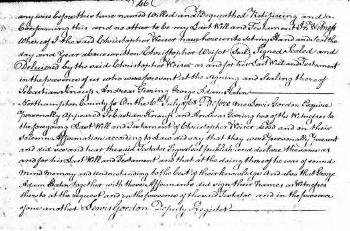 466
any wise before this time named Willed and Bequeathed Ratifying and
Confirming this and no other to be my Last Will and Testament In Witness
Whereof I the said Christopher have hereunto set my Hand and Seal the
day and Year above written Christopher (Seal) Signed Sealed and
Delivered by the said Christopher as and for his Last Will and Testament
in the presence of us who were present at the signing and sealing thereof
Sebastian Andreas George Adam
Northampton County On the 6th July Before me Lewis Gordon Esquire
Personally Appeared Sebastian and Andreas two of the Witnesses to
the foregoing Last Will and Testament of Christopher and on their
Solemn according to Law did say that they were Personally Present
and did see and hear the said Testator Sign Seal publish and declare the same
as and for his Last Will and Testament and that at the doing thereof he was of sound
Mind Memory and Understanding to the best of their knowledge And also that George
Adam together with these did sign their Names as Witnesses
thereto at the request and in the presence of the said Testator and in the presence
of one another Lewis Gordon Deputy Register